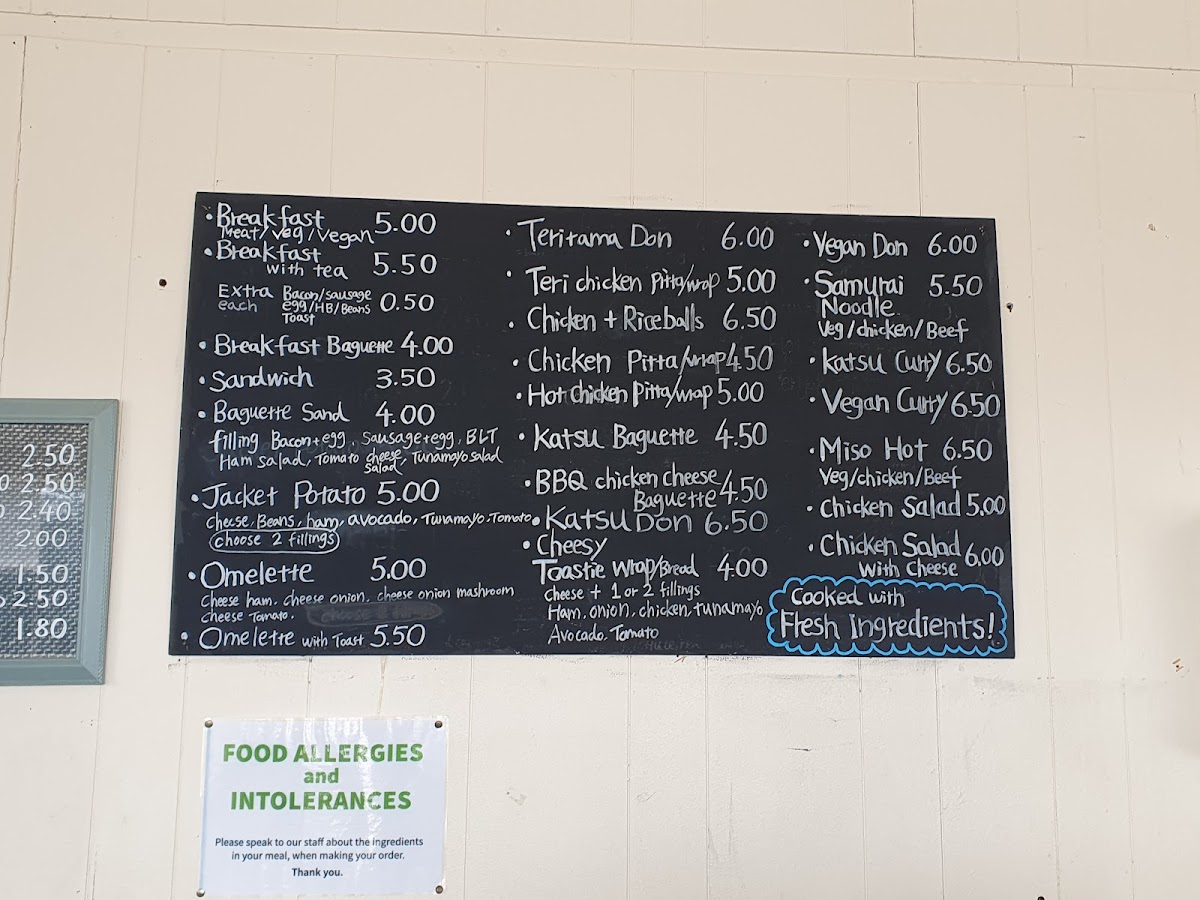 • Breakfast 5.00
Meat/Veg/Vegan
• Breakfast
with tea 5.50
Extra Bacon/sausage
each egg/HB/Beans 0.50
Toast
• Breakfast Baguette 4.00
• Sandwich 3.50
• Baguette Sand 4.00
filling Bacon+egg, Sausage+egg, BLT
Ham salad, Tomato cheese salad, Tunamayo salad
• Jacket Potato 5.00
cheese, Beans, ham, avocado, Tunamayo, Tomato
choose 2 fillings
• Omelette 5.00
Cheese ham. cheese onion, cheese onion mashroom
cheese Tomato.
• Omelette with Toast 5.50
• Teritama Don 6.00
• Teri chicken Pitta/wrap 5.00
• Chicken + Riceballs 6.50
• Chicken Pitta/wrap 4.50
• Hot chicken Pitta/wrap 5.00
• Katsu Baguette 4.50
• BBQ chicken cheese
Baguette 4.50
• Katsu Don 6.50
• Cheesy
Toastie Wrap/Bread 4.00
cheese + 1 or 2 fillings
Ham, onion, chicken, tunamayo
Avocado. Tomato
• Vegan Don 6.00
• Samurai 5.50
Noodle
Veg/chicken/Beef
• Katsu Curry 6.50
• Vegan Curry 6.50
• Miso Hot 6.50
Veg/chicken/Beef
• Chicken Salad 5.00
• Chicken Salad
With Cheese 6.00
Cooked with
Fresh Ingredients!
2.50
2.50
2.40
2.00
1.50
2.50
1.80
FOOD ALLERGIES
and
INTOLERANCES
Please speak to our staff about the ingredients
in your meal, when making your order.
Thank you.